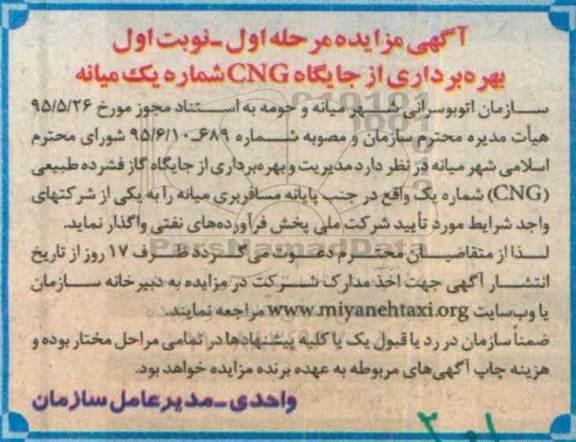 آگهی مزایده مرحله اول ـ نوبت اول
بهره‌برداری از جایگاه CNG شماره یک میانه
سازمان اتوبوسرانی شهر میانه و حومه به استناد مجوز مورخ ۹۵/۵/۲۶
هیأت مدیره محترم سازمان و مصوبه شماره ۶۸۹ـ۹۵/۶/۱۰ شورای محترم
اسلامی شهر میانه در نظر دارد مدیریت و بهره‌برداری از جایگاه گاز فشرده طبیعی
(CNG) شماره یک واقع در جنب پایانه مسافربری میانه را به یکی از شرکتهای
واجد شرایط مورد تأیید شرکت ملی پخش فرآورده‌های نفتی واگذار نماید.
لـذا از متقاضیـان محتـرم دعـوت می‌گـردد ظـرف ۱۷ روز از تاریخ
انتشـار آگهی جهت اخذ مدارک شـرکت در مزایده به دبیرخانه سـازمان
یا وب‌سایت www.miyanehtaxi.org مراجعه نمایند.
ضمناً سازمان در رد یا قبول یک یا کلیه پیشنهادها در تمامی مراحل مختار بوده و
هزینه چاپ آگهی‌های مربوطه به عهده برنده مزایده خواهد بود.
واحدی ـ مدیرعامل سازمان
ParsNamadData